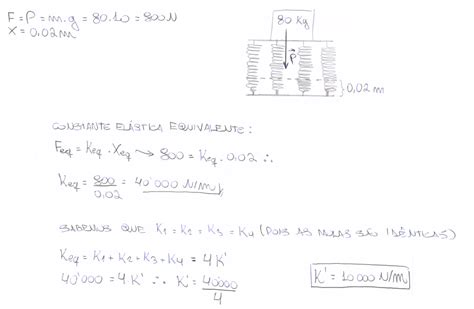 F = P = m.g = 80.10 = 800N
X = 0.02m
80 Kg
P
0,02 m
CONSTANTE ELÁSTICA EQUIVALENTE:
Feq = Keq . Xeq → 800 = Keq . 0.02 ∴
Keq = 800/0.02 = 40'000 N/m
SABEMOS QUE K1 = K2 = K3 = K4 (POIS AS MOLAS SÃO IDÊNTICAS)
Keq = K1 + K2 + K3 + K4 = 4K'
40'000 = 4.K' ∴ K' = 40000/4
K' = 10000 N/m